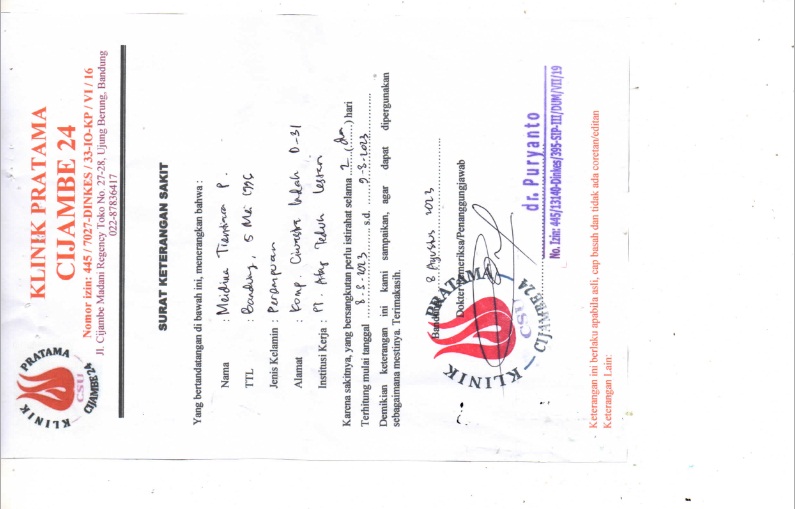 KLINIK PRATAMA
CSU
CIJAMBE 24
KLINIK PRATAMA
CIJAMBE 24
Nomor izin: 445 / 7027-DINKES / 33-IO-KP / VI / 16
Jl. Cijambe Madani Regency Toko No. 27-28, Ujung Berung, Bandung
022-87836417
SURAT KETERANGAN SAKIT
Yang bertandatangan di bawah ini, menerangkan bahwa :
Nama : Meidina P.
TTL : Bandung, 5 Mei
Jenis Kelamin : Perempuan
Alamat : Komp. Indah D-31
Institusi Kerja : PT. Teduh Lestari
Karena sakitnya, yang bersangkutan perlu istirahat selama 2 (dua) hari
Terhitung mulai tanggal 8-8-2023 s.d. 9-8-2023
Demikian keterangan ini kami sampaikan, agar dapat dipergunakan
sebagaimana mestinya. Terimakasih.
Bandung 8 Agustus 2023
Dokter Pemeriksa/Penanggungjawab
KLINIK PRATAMA
CSU
CIJAMBE 24
dr. Puryanto
No. Izin: 445/13140-Dinkes/395-SIP-III/DUM/VII/19
Keterangan ini berlaku apabila asli, cap basah dan tidak ada coretan/editan
Keterangan Lain: